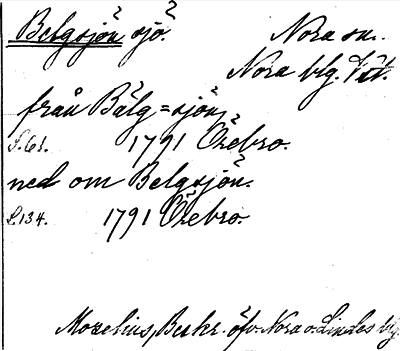 Belgsjön sjö.
Nora sn.
Nora blg. Väst.
från Bälg=sjön
S.61. 1791 Örebro.
ned om Belgsjön.
S.134. 1791 Örebro.
Moselius, Beskr. öfv. Nora o. Lindes blg.